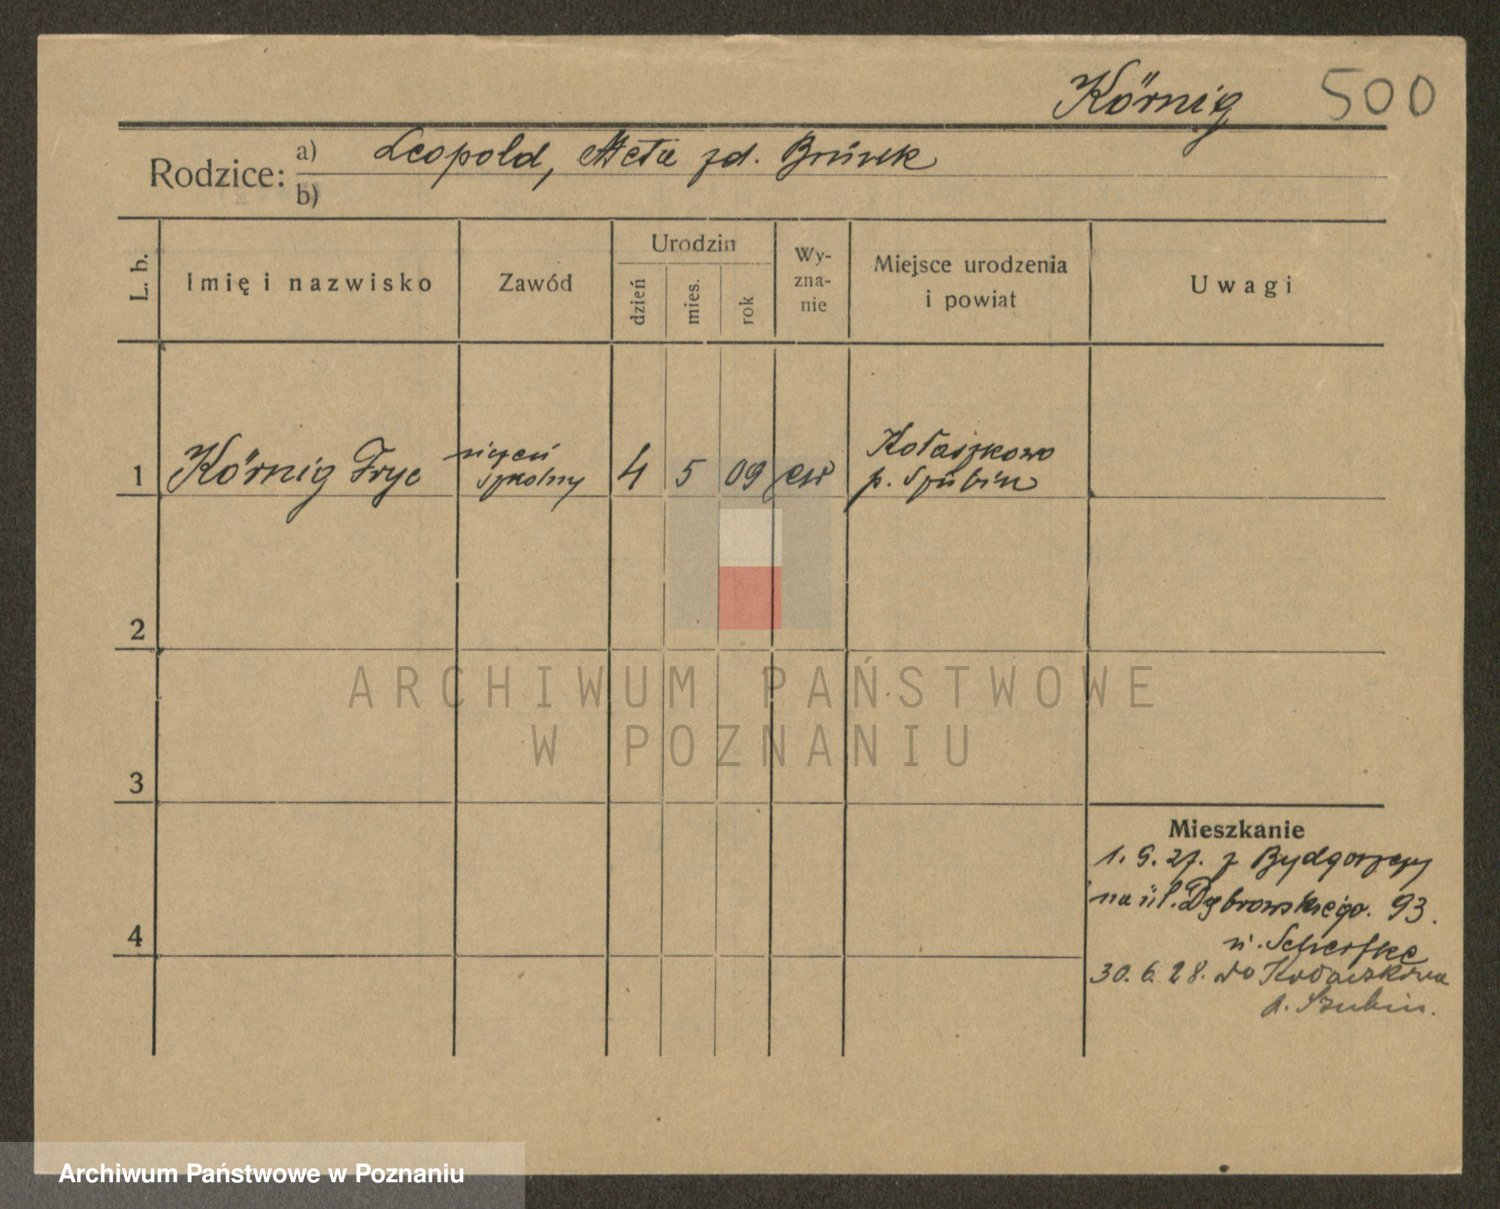 Körnig 500
Rodzice: a) Leopold, Meta zd.
b)
L. b.
Imię i nazwisko
Zawód
Urodzin
dzień
mies.
rok
Wy-
zna-
nie
Miejsce urodzenia
i powiat
Uwagi
1 Körnig Fryc
uczeń
szkolny
4 5 09 ew
Kołaczkowo
p. Szubin
2
3
4
Mieszkanie
1. 9. 27. z Bydgoszczy
na ul. Dąbrowskiego. 93.
u. Scherfke
30. 6. 28. do Kołaczkowa
p. Szubin.
ARCHIWUM PAŃSTWOWE
W POZNANIU
Archiwum Państwowe w Poznaniu